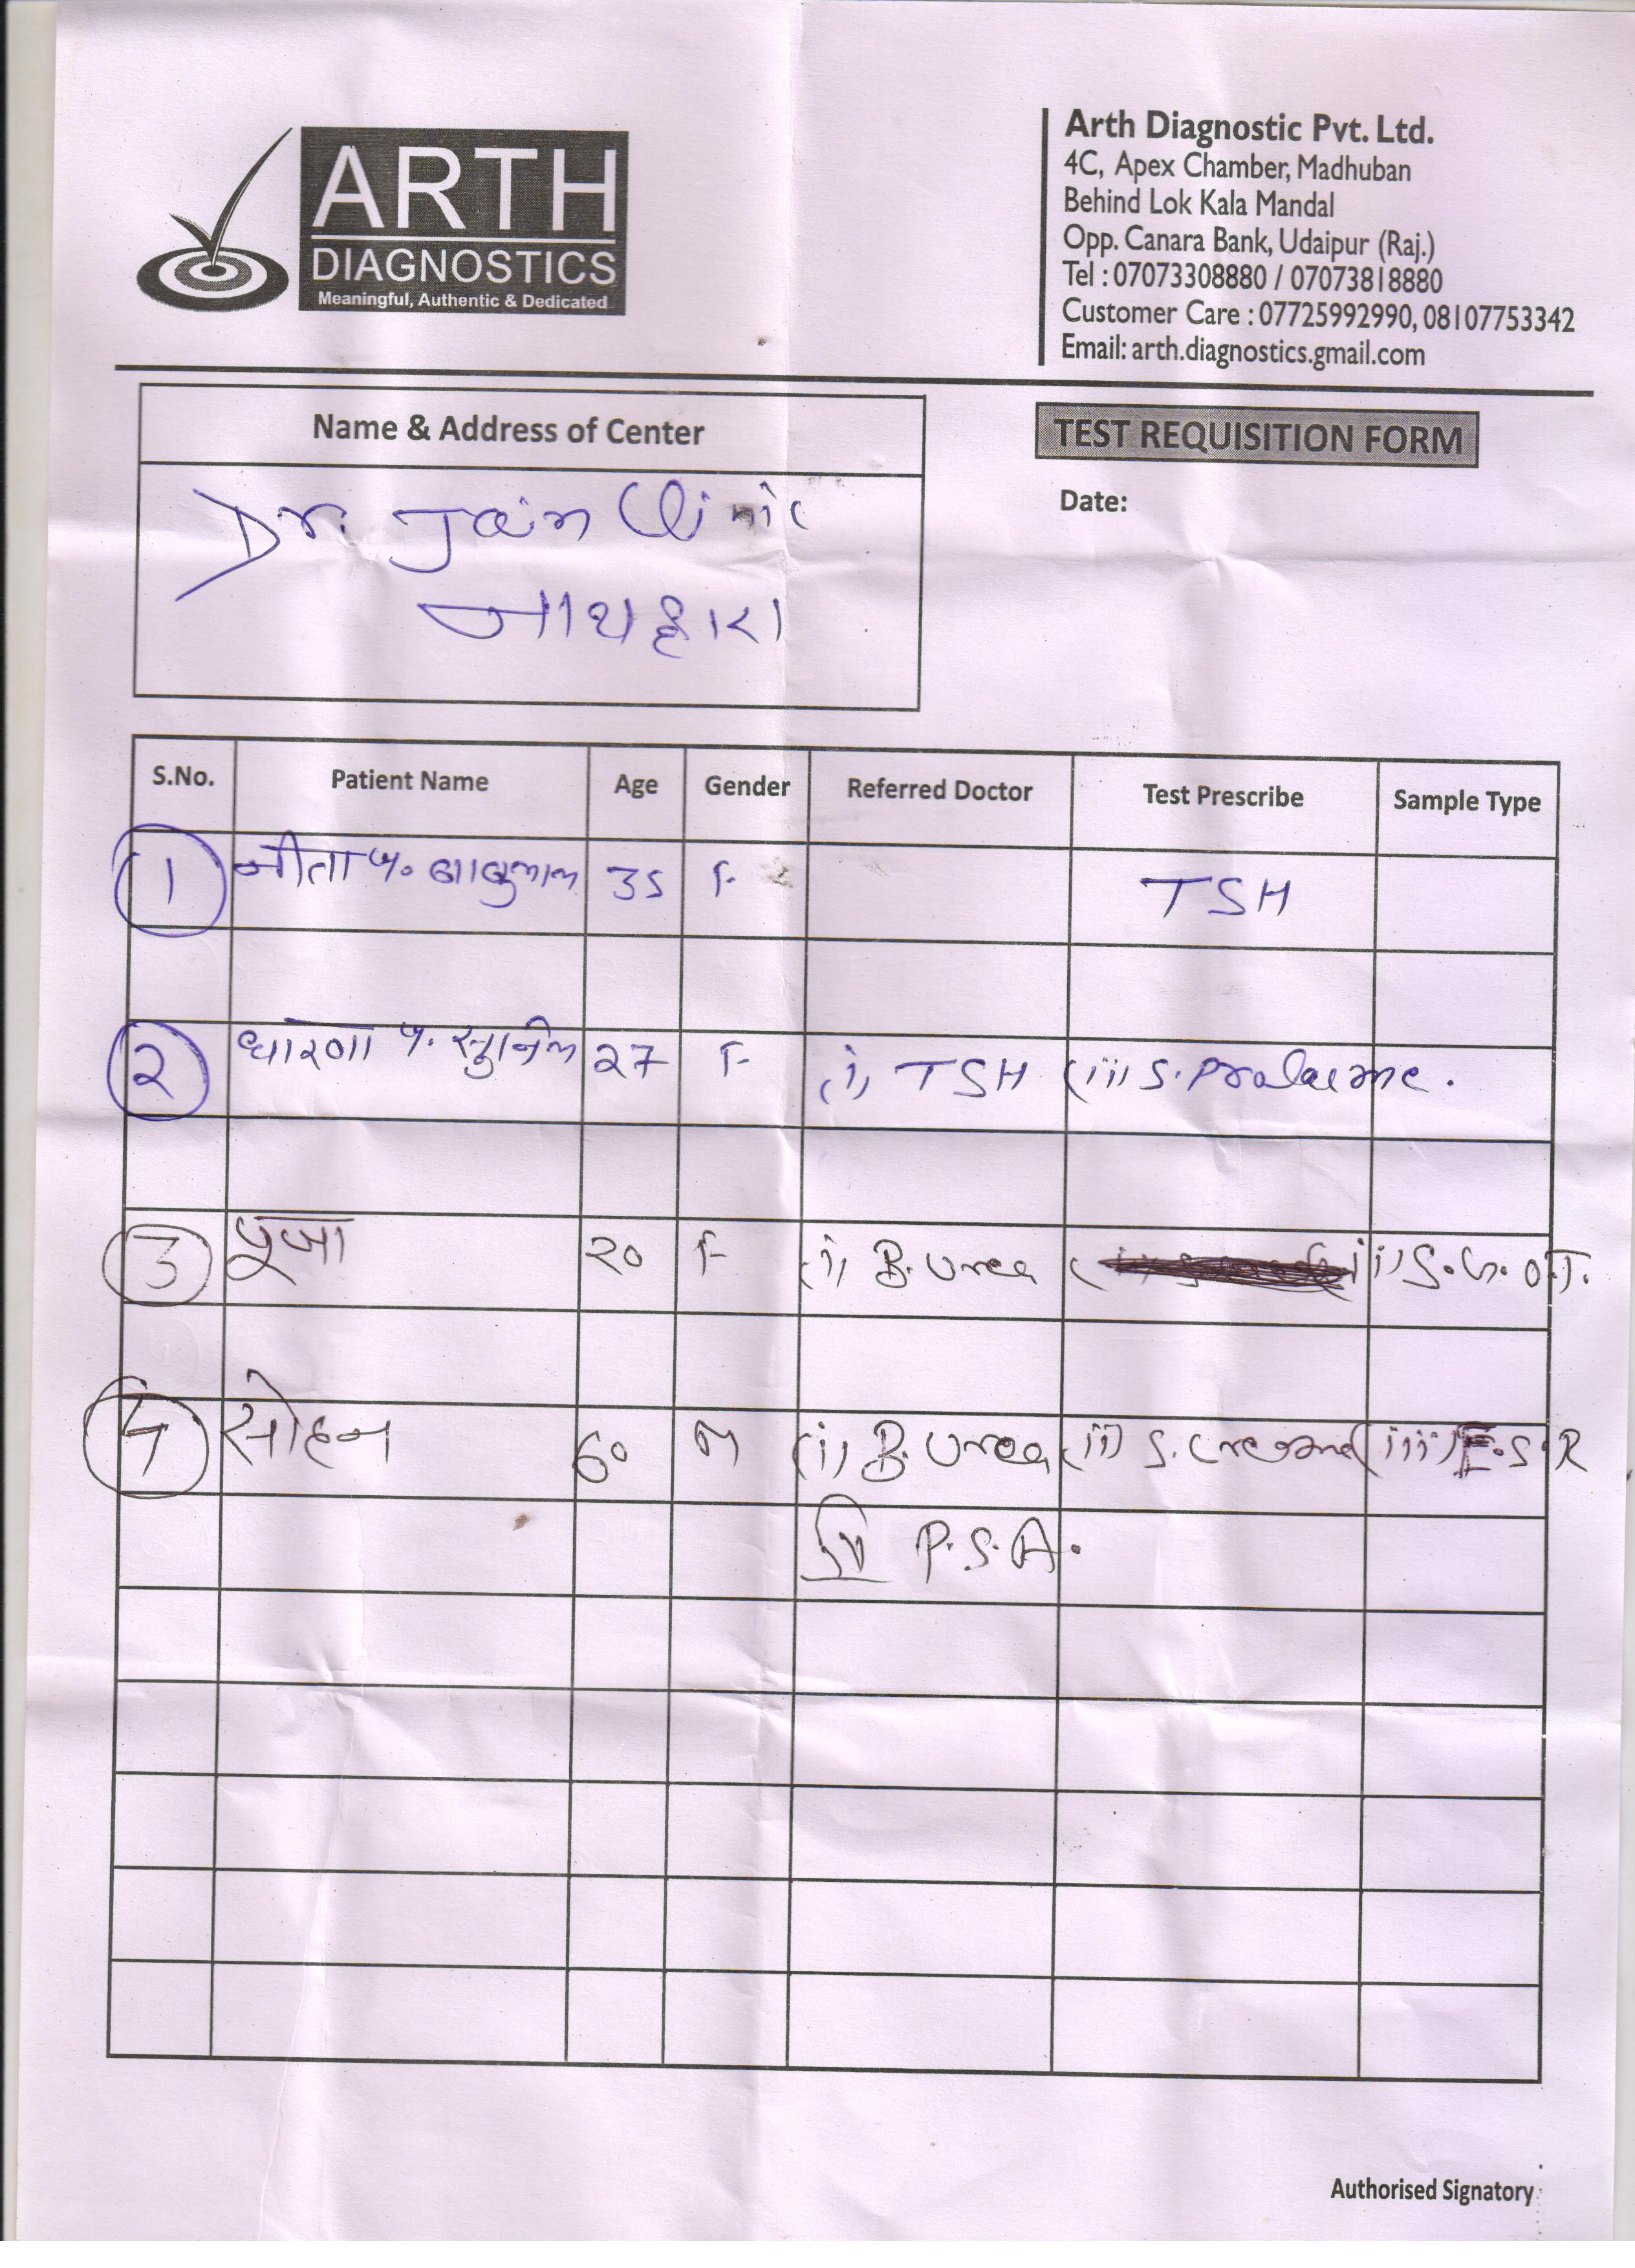 ARTH
DIAGNOSTICS
Meaningful, Authentic & Dedicated
Arth Diagnostic Pvt. Ltd.
4C, Apex Chamber, Madhuban
Behind Lok Kala Mandal
Opp. Canara Bank, Udaipur (Raj.)
Tel : 07073308880 / 07073818880
Customer Care : 07725992990, 08107753342
Email: arth.diagnostics.gmail.com
Name & Address of Center
TEST REQUISITION FORM
Date:
Dr. Jain Clinic
नाथद्वारा
S.No. Patient Name Age Gender Referred Doctor Test Prescribe Sample Type
1 नीता प. बाबुलाल 35 F TSH
2 धारणा प. सुनिल 27 F (i) TSH (ii) S.
3 पूजा 20 F (i) B. Urea ii) S.G.O.T.
4 सोहन 60 M (i) B. Urea (ii) S. (iii) E.S.R
IV P.S.A.
Authorised Signatory